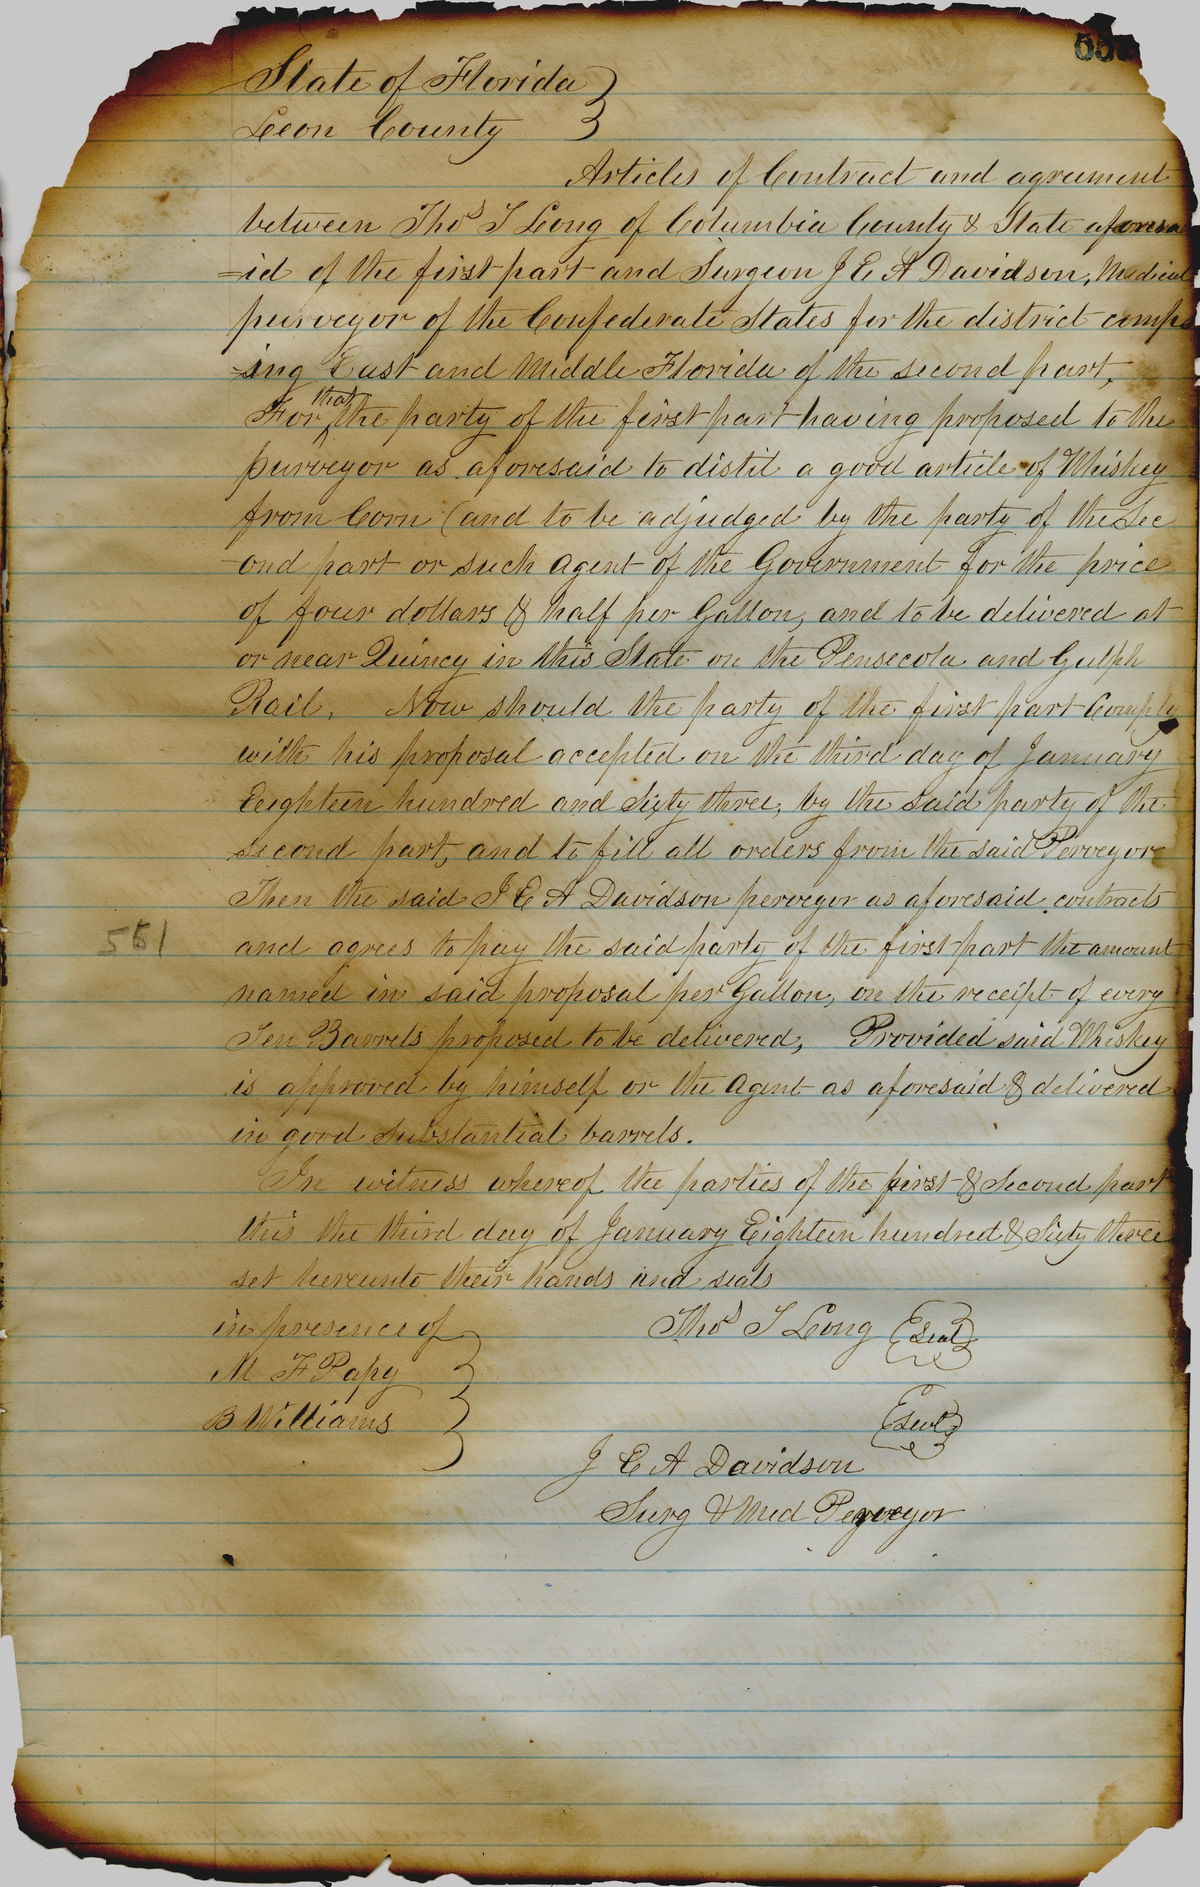 State of Florida }
Leon County }
Articles of Contract and agreement
between Thos T Long of Columbia County & State aforesa
=id of the first part and Surgeon J E A Davidson, Medical
purveyor of the Confederate States for the district compo
=sing East and Middle Florida of the second part,
For that the party of the first part having proposed to the
purveyor as aforesaid to distil a good article of Whiskey
from Corn (and to be adjudged by the party of the Sec
ond part or such Agent of the Government for the price
of four dollars & half per Gallon, and to be delivered at
or near Quincy in this State on the Pensecola and Gulph
Rail, Now should the party of the first part Comply
with his proposal accepted on the third day of January
Eeighteen hundred and Sixty three, by the said party of the
second part, and to fill all orders from the said Perveyor
Then the said J E A Davidson perveyor as aforesaid contracts
551
and agrees to pay the said party of the first part the amount
named in said proposal per Gallon, on the receipt of every
Ten Barrels proposed to be delivered, Provided said Whiskey
is approved by himself or the Agent as aforesaid & delivered
in good substantial barrels.
In witness whereof the parties of the first & Second part
this the third day of January Eighteen hundred & Sixty three
set hereunto their hands and seals
in presence of
Thos T Long {Seal}
M F Papy
B Williams
{Seal}
J E A Davidson
Surg & Med Perveyor